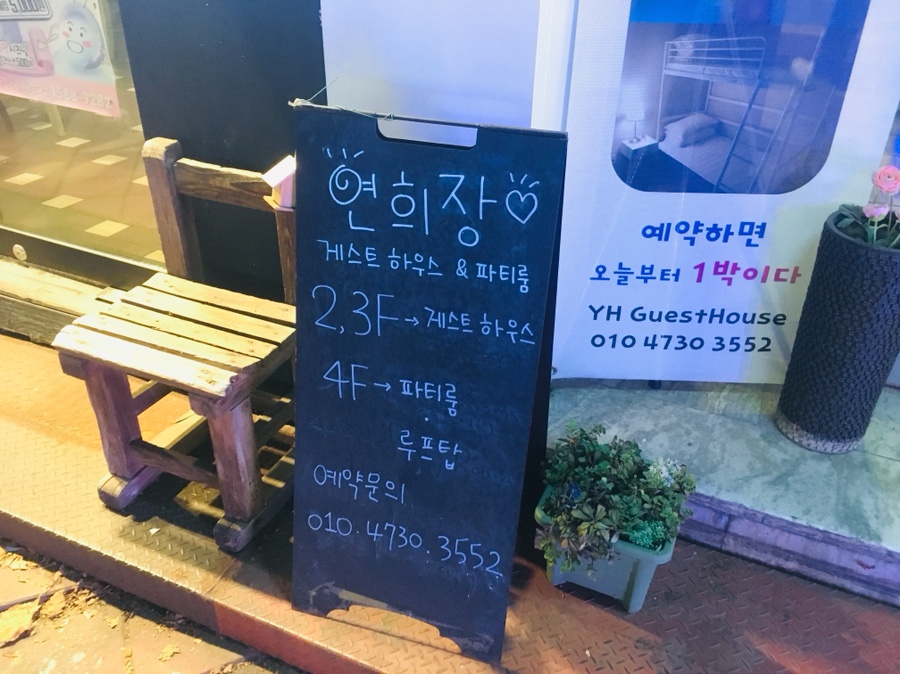 연희장
게스트 하우스 & 파티룸
2,3F → 게스트 하우스
4F → 파티룸
·
루프탑
예약문의
010.4730.3552
예약하면
오늘부터 1박이다
YH GuestHouse
010 4730 3552